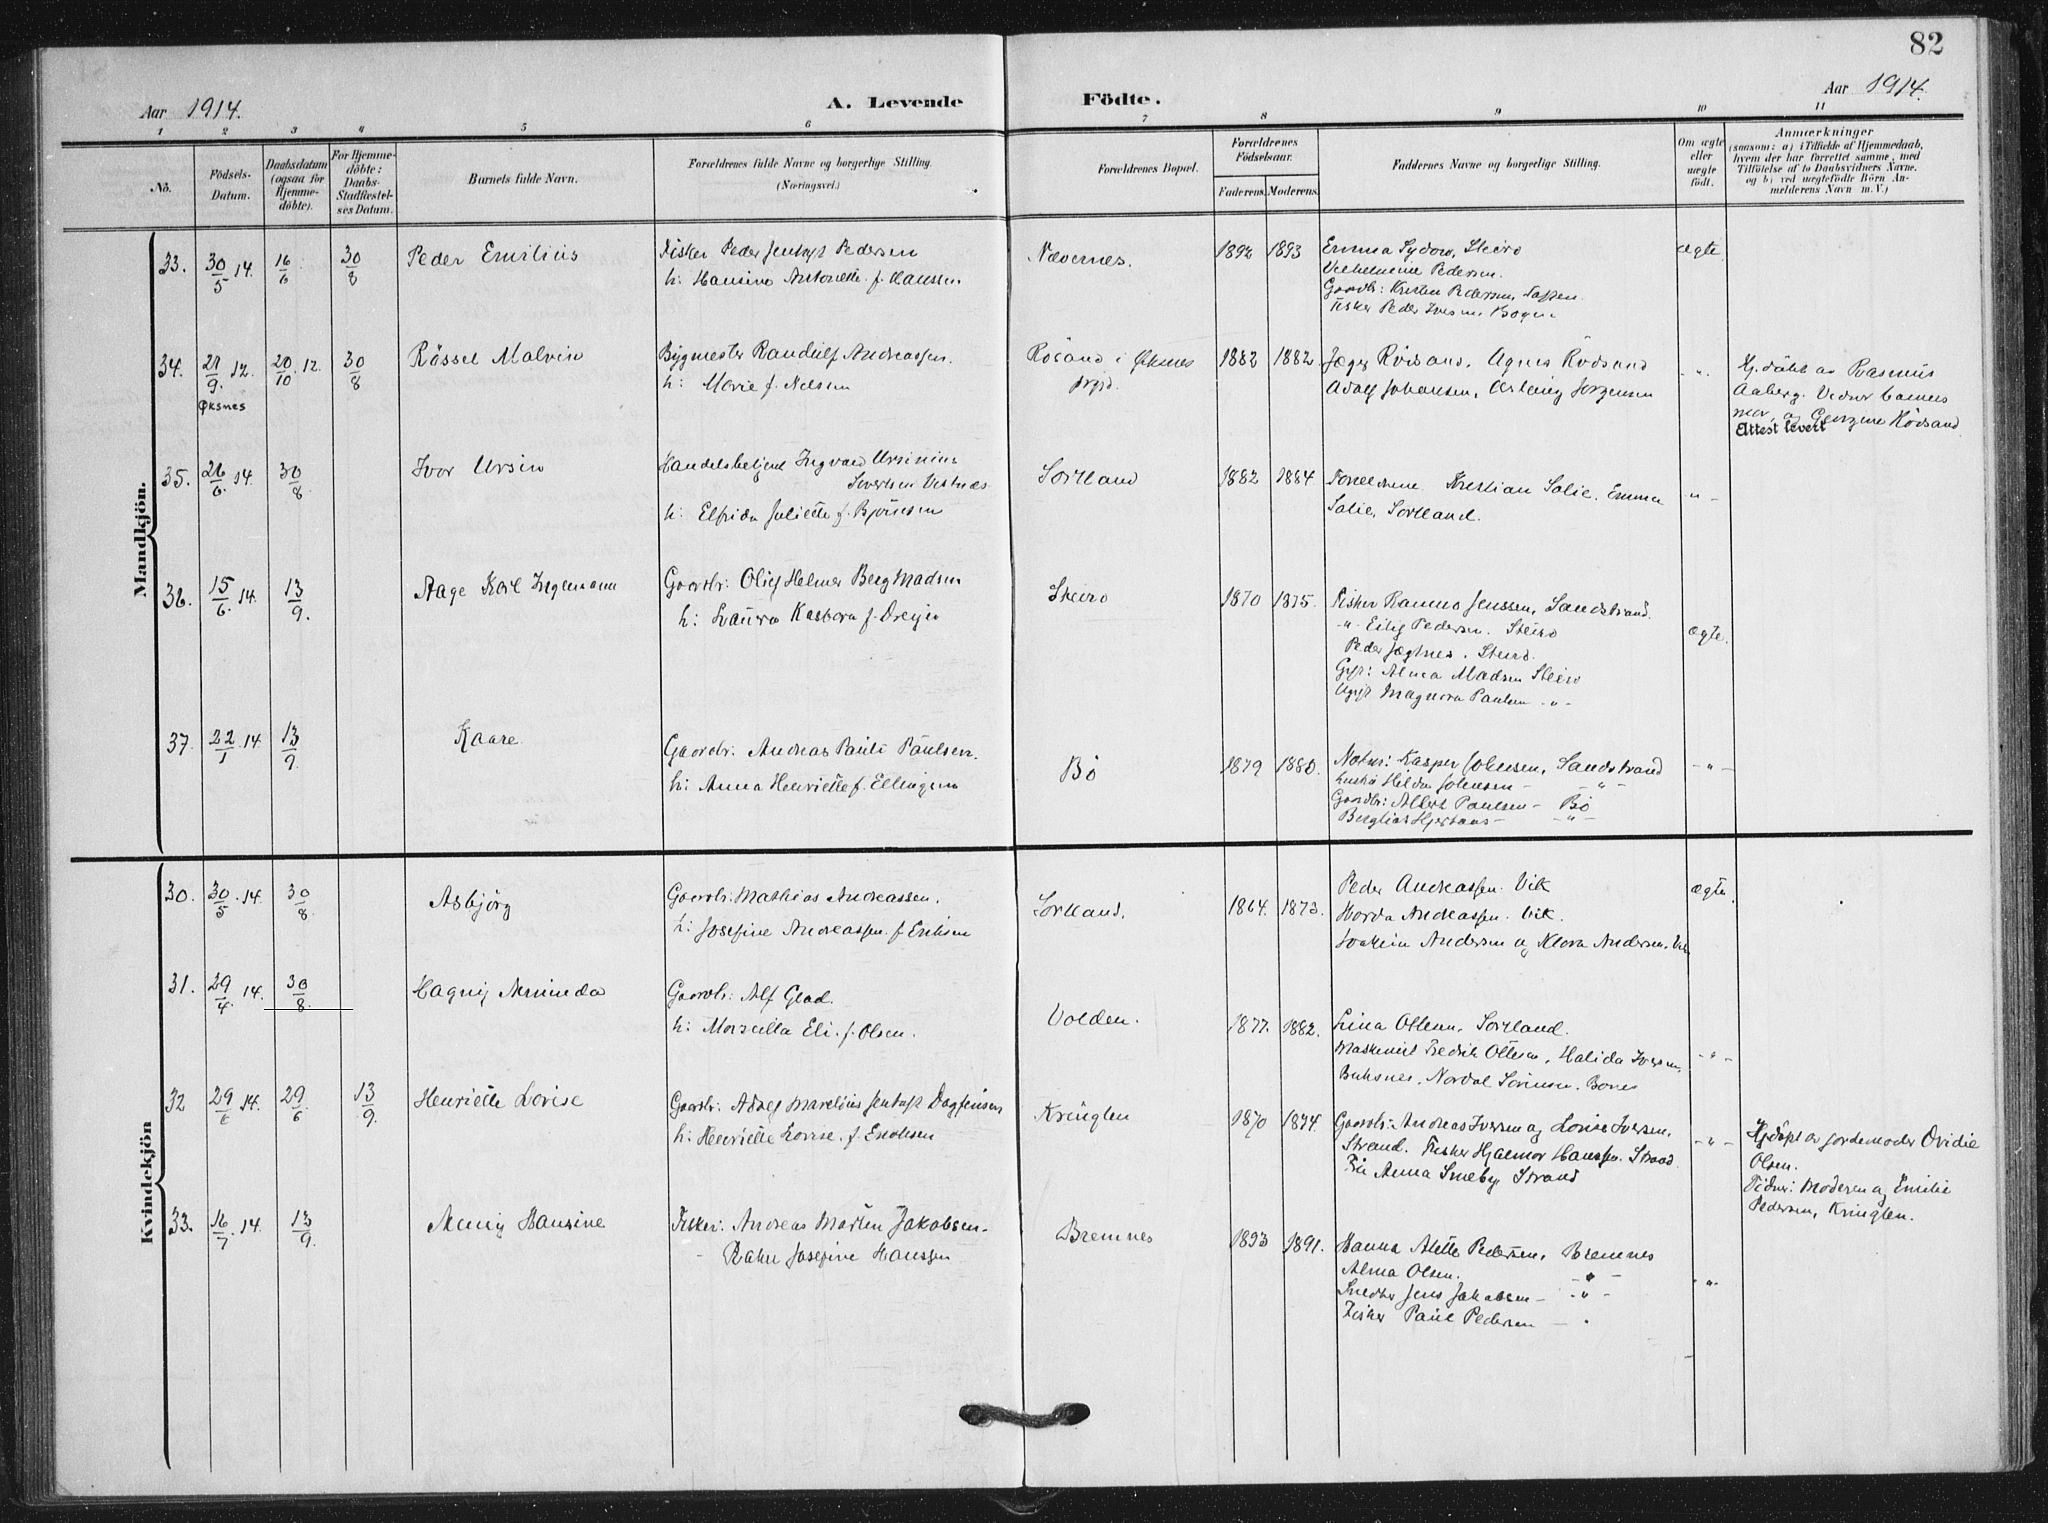 82
Aar 1914.
A. Levende Födte.
Aar 1914.
1 2 3 4 5 6 7 8 9 10 11
No.
Födsels-
Datum.
Daabsdatum
(ogsaa for
Hjemme-
döbte).
For Hjemme-
döbte:
Daabs-
Stadfæstel-
ses Datum.
Barnets fulde Navn.
Forældrenes fulde Navne og borgerlige Stilling.
(Næringsvei.)
Forældrenes Bopæl.
Forældrenes
Födselsaar.
Faderens. Moderens.
Faddernes Navne og borgerlige Stilling.
Om ægte
eller
uægte
födt.
Anmærkninger
(saasom: a) i Tilfælde af Hjemmedaab,
hvem der har forrettet samme, med
Tilföielse af to Daabsvidners Navne,
og b) ved uægtefödte Börn An-
melderens Navn m. V.)
Mandkjön.
33. 30/5 14. 16/6. 30/8 Peder Emilius
Fisker Peder Jentoft Pedersen
h: Hansine Antonette f. Hanssen
Nævernes. 1892 1893
Emma Sydow, Steiro
Vilhelmine Pedersen.
Gaardbr: Kristen Pedersen,
Fisker Peder Iversen, Bogen
ægte.
34. 21/9. 12. 20/10. 12. 30/8
Øksnes
Rössel Malvin
Bygmester Randulf Andreassen.
h: Marie f. Nelsen
i Øksnes
prgjd.
1882 1882.
Agnes Rödsand
Adolf Johansen, Jörgensen
- " -
Hj.döbt av Rasmus
Aaberg.
og Georgine Rödsand.
Attest levert
35. 26/6. 14. 30/8. Ivar Ursin
Handelsbetjent Ingvard Ursinius
Sivertsen Vestnes
h: Elfrida Juliette f. Björnsen
Sortland 1882 1884.
Forældrene Kristian Salie. Emma
Salie, Sortland.
- " -
36. 15/6. 14. 13/9. Aage Karl Ingemann
Gaardbr: Oluf Helmer Berg Madsen
h: Laura Kasbara f. Dreyer
Steiro 1870 1875.
Fisker Ranno Jenssen, Sandstrand.
- " - Eilif Pedersen. Steiro
Peder Jægtnes. Steiro.
Gift: Alma Madsen Steiro
Ugift Magnora Paulsen - " -
ægte.
37. 22/1 14. 13/9. Kaare.
Gaardbr: Andreas Pauli Paulsen.
h: Anna Henriette f. Ellingsen
Bö 1879 1880.
Kasper Johnsen, Sandstrand
Hustru Hilda Johnsen - - " -
Gaardbr: Albert Paulsen - Bö
Bergliot Hjertaas - - " -
- " -
Kvindekjön
30. 30/5. 14. 30/8. Asbjörg
Gaardbr: Mathias Andreassen.
h: Josefine Andreassen. f Eriksen
Sortland. 1864. 1873.
Peder Andreassen. Vik
Horda Andreassen. Vik.
Joakim Andersen og Klara Andersen. Vik
ægte.
31. 29/4. 14. 30/8. Hagny Arminda
Gaardbr: Alf Glad.
h: Marselia Eli. f. Olsen.
Volden. 1877. 1882.
Lina Ottesen, Sortland.
Maskinist Fredrik Ottesen, Halida Iversen,
Buksnes, Nordal Sörensen. Bones
- " -
32 29/6 14. 29/6. 13/9. Henriette Lovise
Gaardbr: Adolf Marelius Jentoft Dagfinsen
h: Henriette Lovise. f. Enoksen
Kringlen 1870 1874.
Gaardbr: Andreas Iversen og Lovise Iversen,
Strand. Fisker Hjalmar Hanssen. Strand.
Fru Anna Smeby, Strand
- " -
Hj.döpt av jordemoder Ovidie
Olsen.
Vidner: Moderen og Emilie
Pedersen, Kringlen.
33. 16/7. 14. 13/9. Hansine
Fisker: Andreas Martin Jakobsen-
- Rakel Josefine Hanssen
Bremnes 1893 1891.
Hanna Alette Pedersen, Bremnes
Alma Olsen. - " -
Jens Jakobsen - - " -
Fisker Paul Pedersen -
- " -